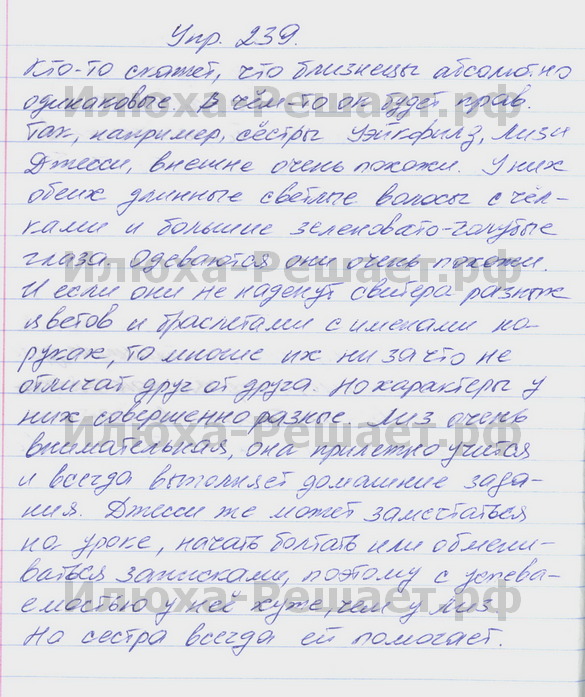 Упр. 239.
Кто-то скажет, что близнецы абсолютно
одинаковые. В чём-то он будет прав.
Так, например, сёстры Уэйкфилз, Лизи
Джесси, внешне очень похожи. У них
обеих длинные светлые волосы с чёл-
ками и большие зеленовато-голубые
глаза. Одеваются они очень похожи.
И если они не наденут свитера разных
цветов и браслетами с именами на
руках, то многие их ни за что не
отличат друг от друга. Но характеры у
них совершенно разные. Лиз очень
внимательная, она прилежно учится
и всегда выполняет домашние зада-
ния. Джесси же может замечтаться
на уроке, начать болтать или обмени-
ваться записками, поэтому с успева-
емостью у неё хуже, чем у Лиз.
Но сестра всегда ей помогает.
Илюха-Решает.рф
Илюха-Решает.рф
Илюха-Решает.рф
Илюха-Решает.рф